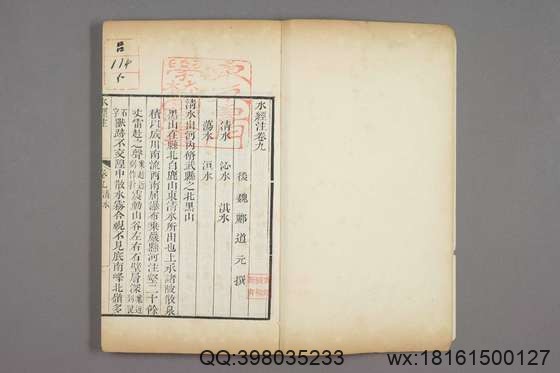 水經注卷九
後魏酈道元撰
清水 沁水 淇水
蕩水 洹水
清水出河內脩武縣之北黑山
黑山在縣北白鹿山東清水所出也上承諸陂散泉
積以成川南流西南屈瀑布乘巖懸河注壑二十餘
丈雷赴之聲震動山谷左右石壁層深
獸跡不交隍中散水霧合視不見底南峰北嶺多
水經注
卷九清水
呂
114
QQ:398035233
wx:18161500127